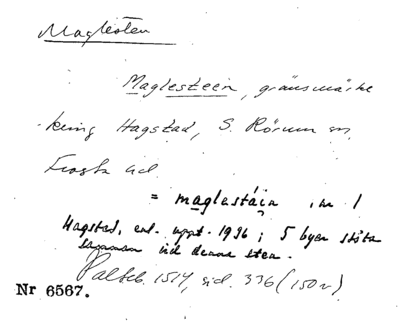 Maglesten
Maglesteen, gränsmärke
kring Hagstad, S. Rörum sn,
Frosta hd.
= maglastáin, m 1
Hagstad, enl. uppt. 1936; 5 byar stöta
samman vid denna sten.
Palteb. 1514, sid. 336 (150 v)
Nr 6567.